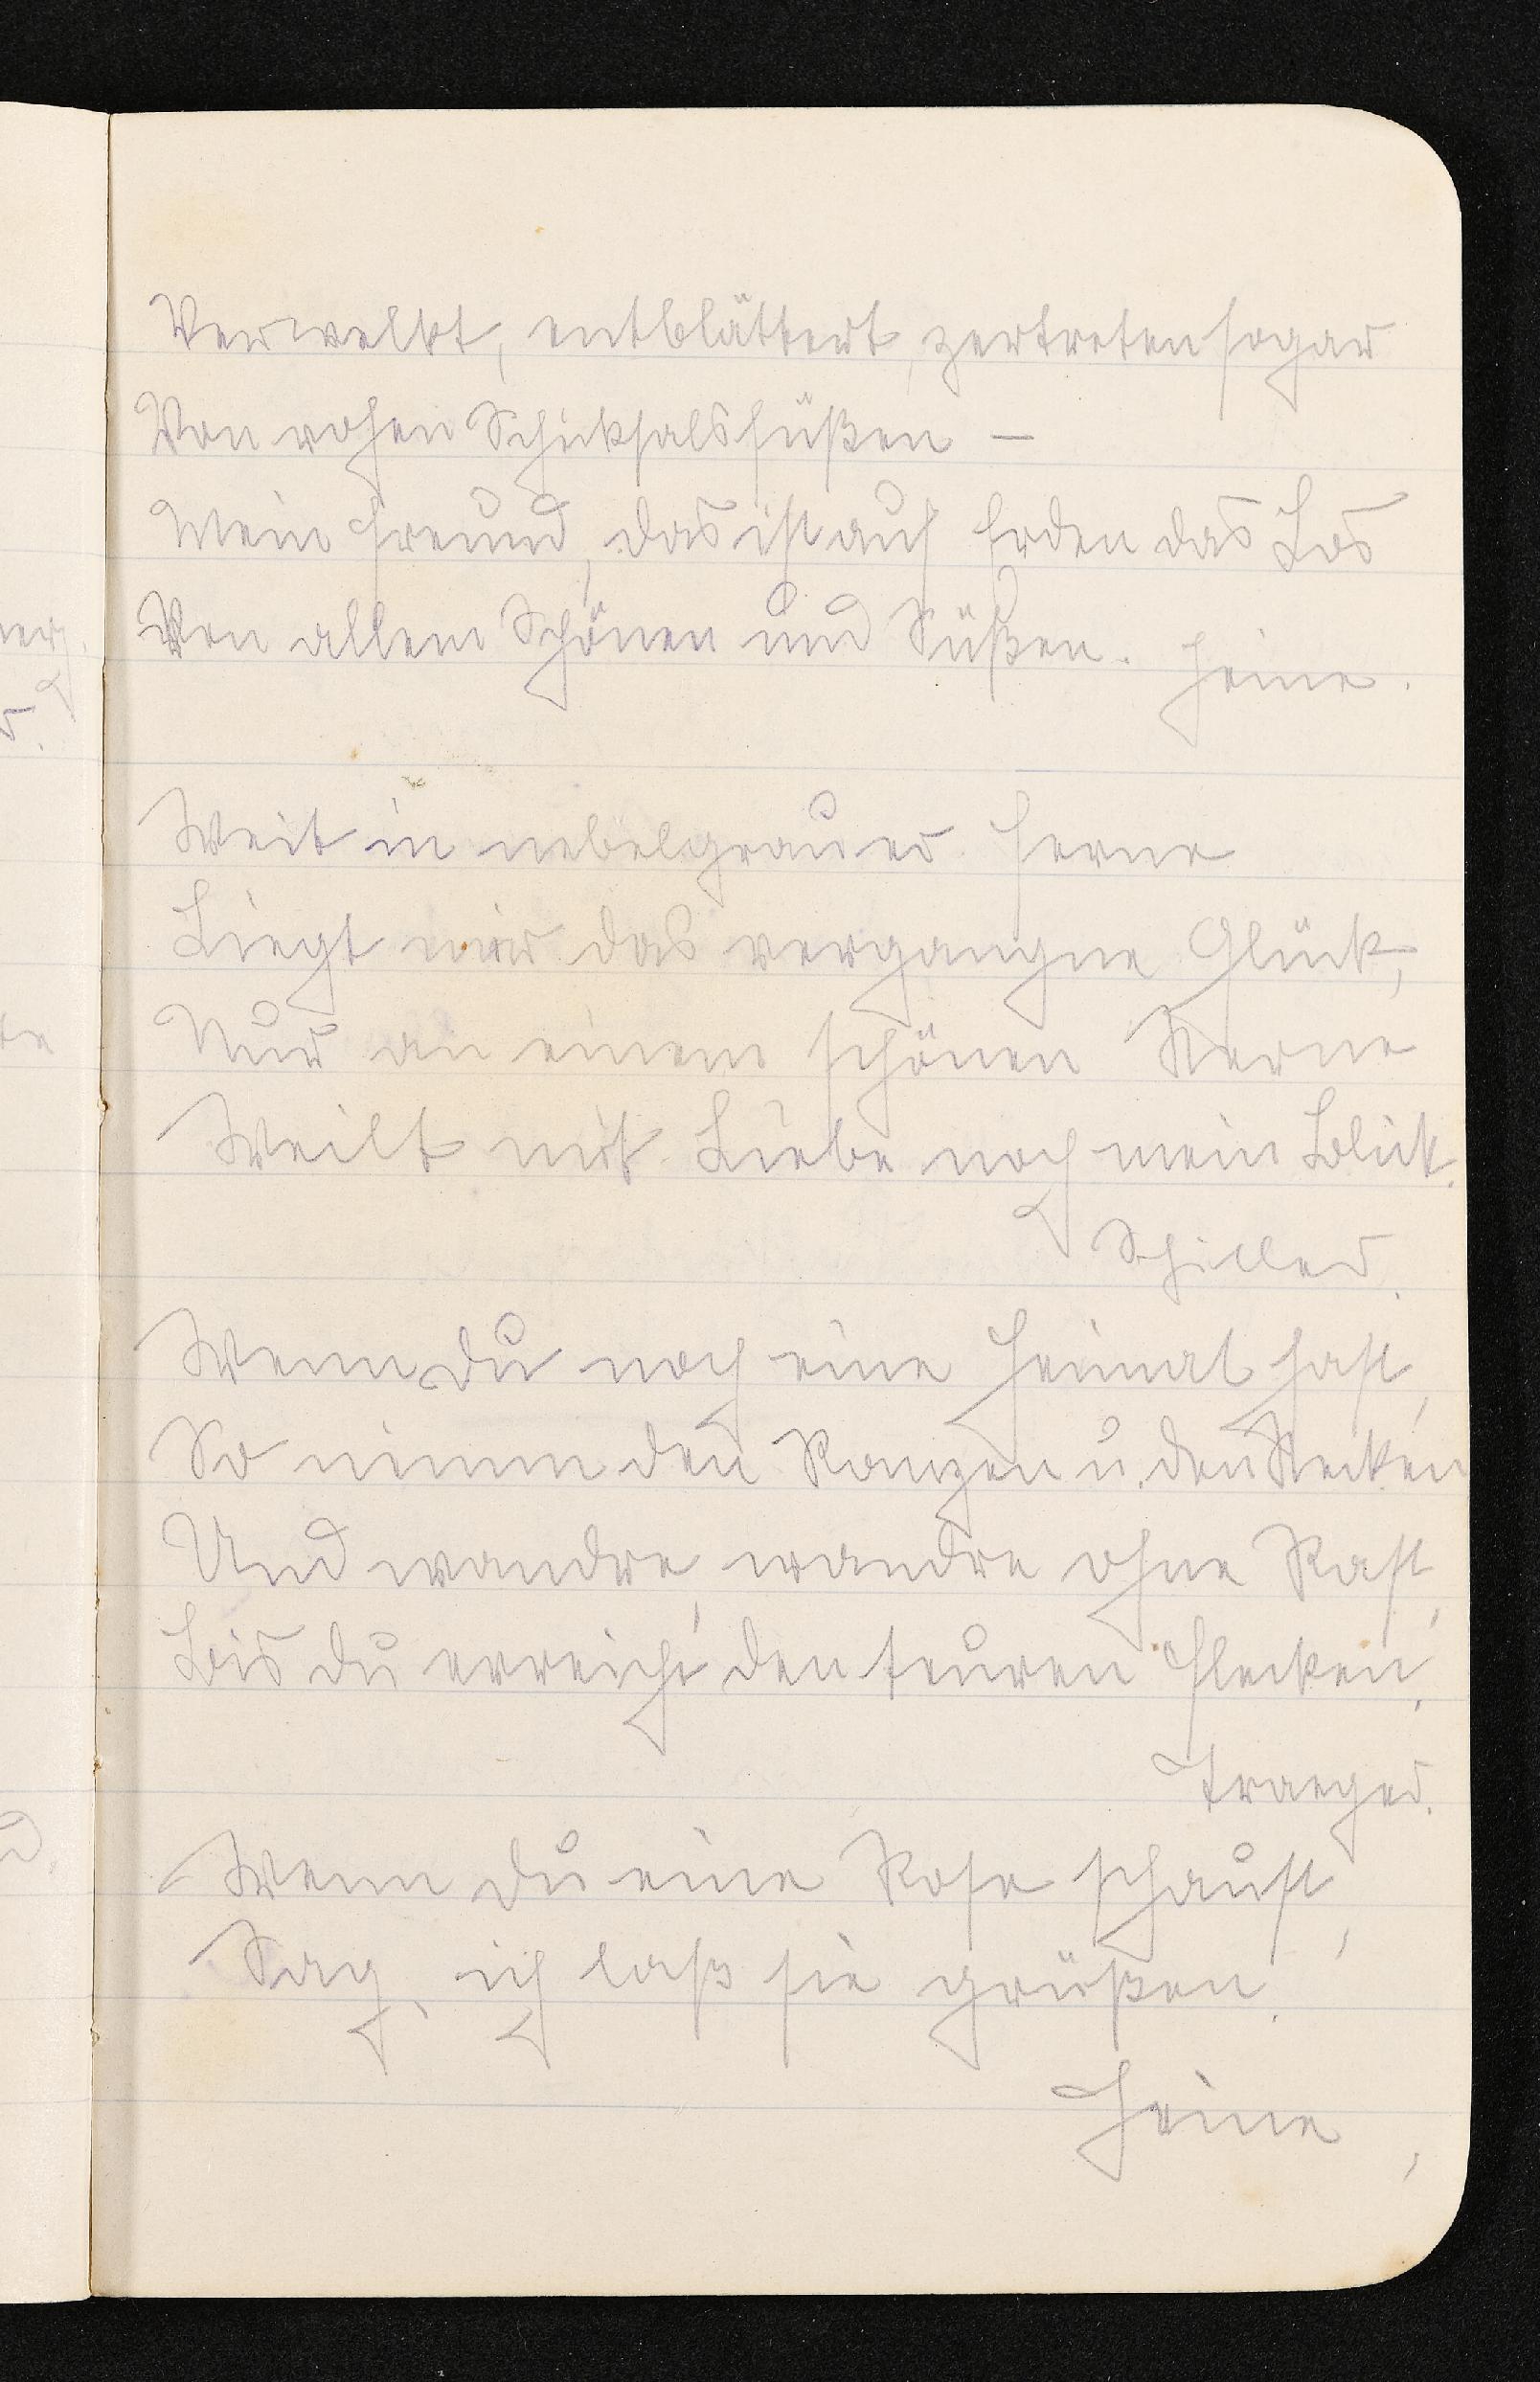 Verwelkt, entblättert, zertreten sogar
Von rohen Schicksalsfüßen –
Mein Freund, das ist auf Erden das Los
Von allem Schönen und Süßen. Heine.
Weit in nebelgrauer Ferne
Liegt mir das vergangne Glück,
Nur an einem schönen Sterne
Weilt mit Liebe noch mein Blick.
Schiller.
Wenn du noch eine Heimat hast,
So nimm den Ranzen u. den Stecken
Und wandre, wandre ohne Rast,
Bis du erreicht den teuren Flecken.
Traeger.
Wenn du eine Rose schaust,
Sag, ich laß sie grüßen.
Heine,